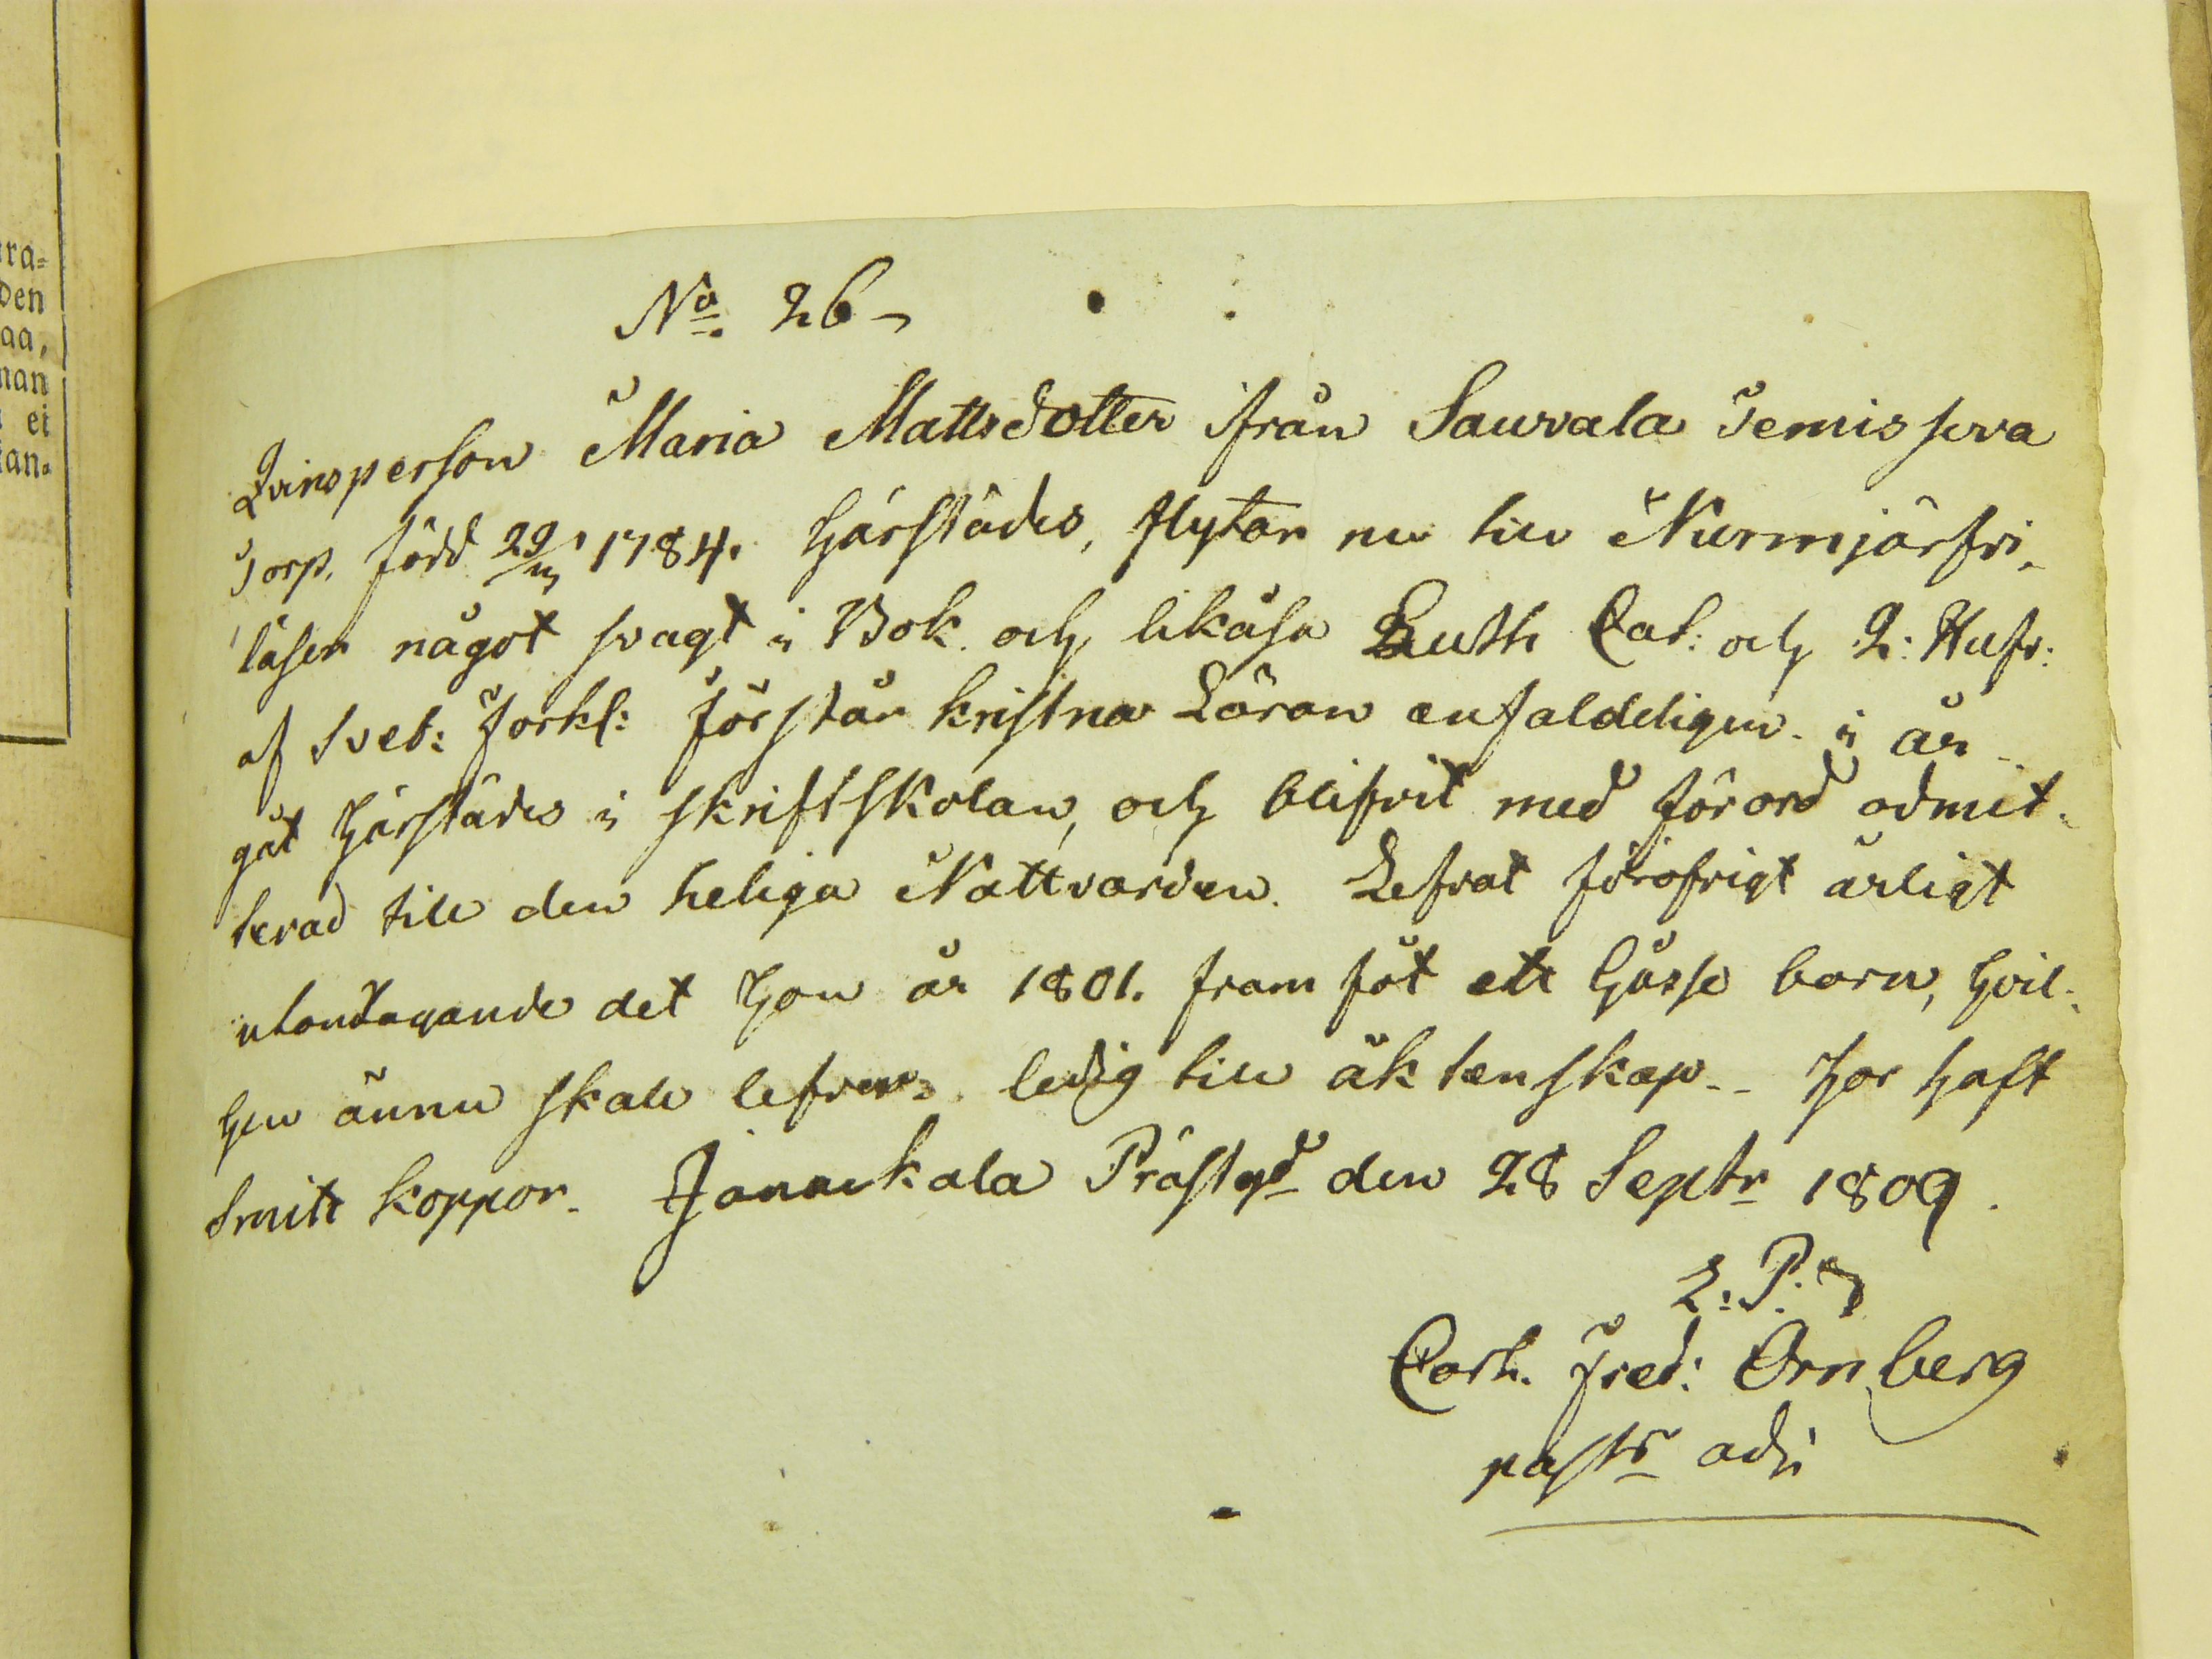 ra=
den
aa,
nan
ei
an=
No. 26
Qvinsperson Maria Mattsdotter ifrån Saurala
Torp. född 29/ 1784. härstädes, flytar nu till Nurmijärfvi.
läser något svagt i Bok. och likåså Luth Cat: och 2: Hufv:
af Sveb: Förkl: Förstår kristna Läran enfaldeligen. i år
gåt härstädes i skriftskolan, och blifvit med förord admit-
terad till den heliga Nattvarden. Lefvat föröfrigt ärligt
utantagande det hon år 1801. fram föt ett Gåsse barn, hvil-
ken ännu skall lefva. ledig till äktenskap. har haft
Smitt koppor. Janackala Prästgd den 28 Septr 1809.
L: P:
Carl. Fred: Örnberg
pastr adj